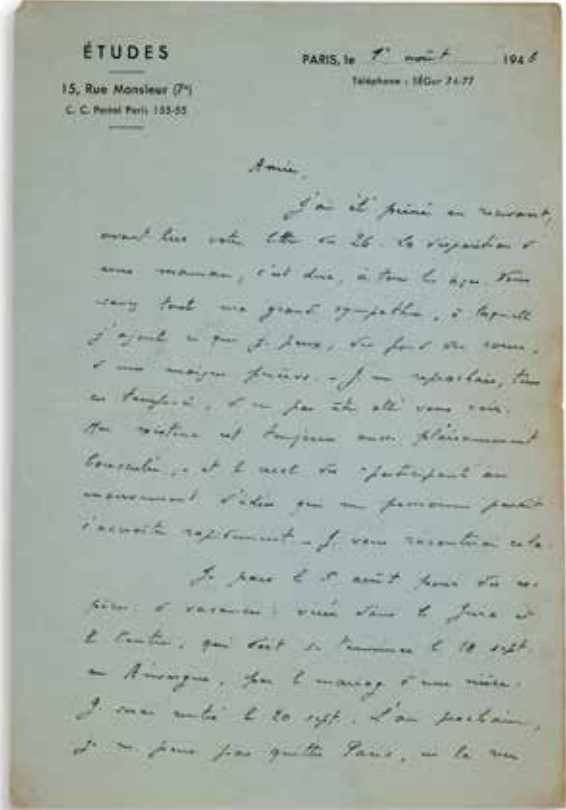 ÉTUDES
15, Rue Monsieur (7e)
C. C. Postal Paris 155-55
PARIS, le 1er août 1946
Téléphone : SÉGur 74-77
Amie,
J'ai été peiné en recevant,
avant hier votre lettre du 26. La disparition d'
une maman, c'est dur, à tous les âges. Vous
savez toute ma grande sympathie, à laquelle
j'ajoute ce que je peux, du fond du coeur,
de mes maigres prières. - Je me reprochais, tous
ces temps-ci, de ne pas être allé vous voir.
Mon existence est toujours aussi plaisamment
bousculée, - et le reste du
mouvement d'idées que me paraît
s'accroître rapidement. - Je vous raconterai cela.
Je pars le 5 août pour des
de vacances : dans le Jura et
le Centre, qui doit se terminer le 18 sept.
en Auvergne, par le mariage d'une nièce.
Je serai rentré le 20 sept. L'an prochain,
je ne pense pas quitter Paris, ni la rue